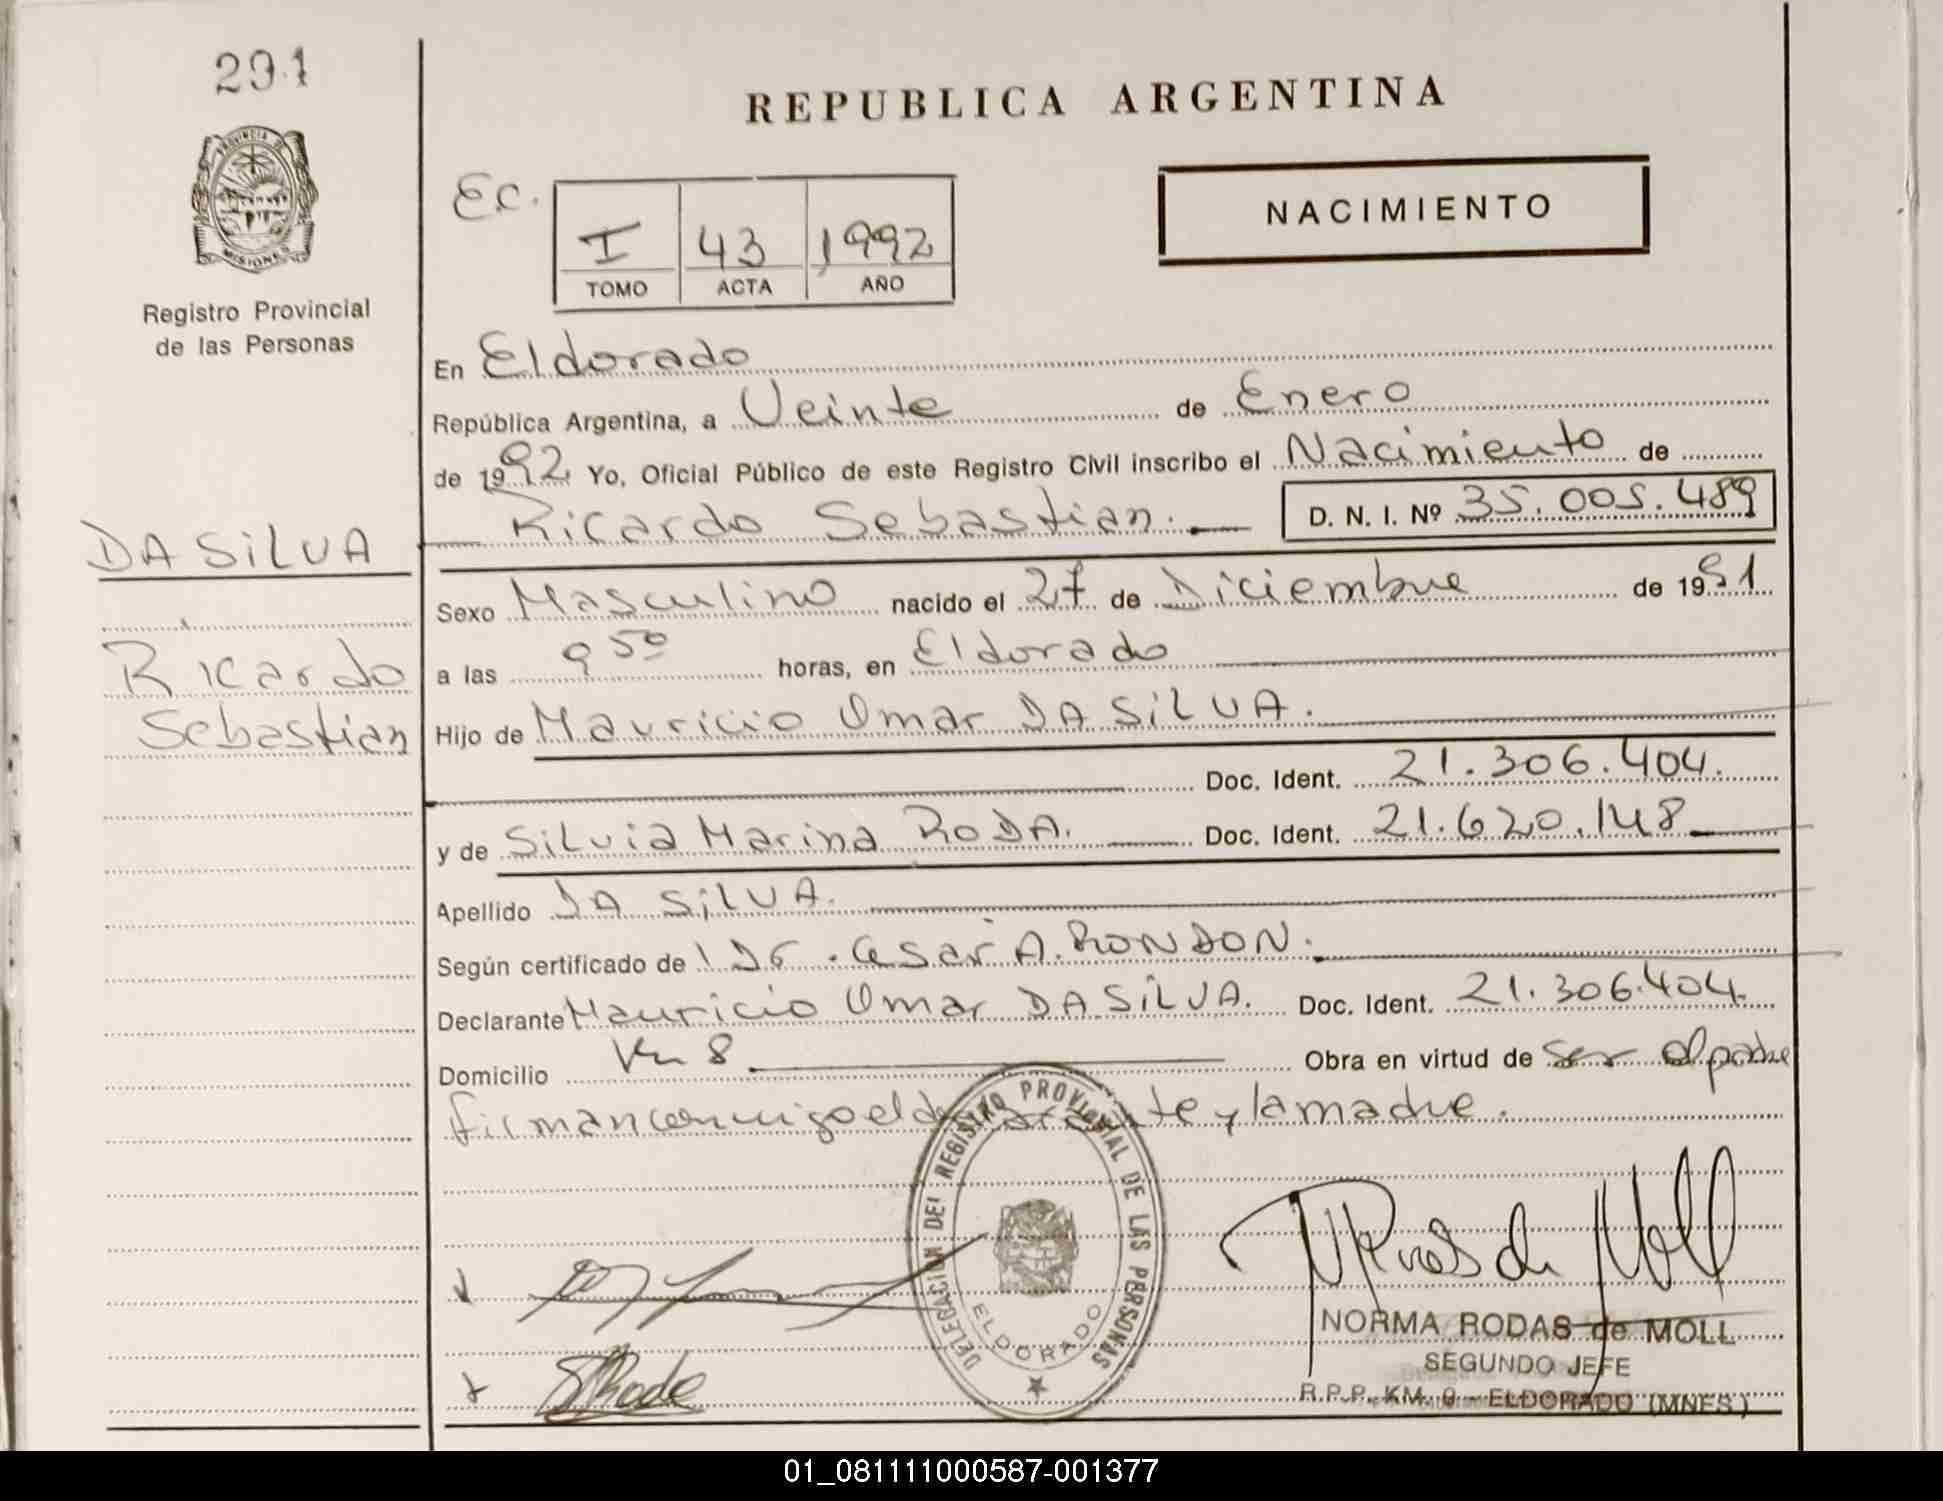 291
PROVINCIA DE
MISIONES
Registro Provincial
de las Personas
DA SILVA
Ricardo
Sebastian
REPUBLICA ARGENTINA
Ec.
I 43 1992
TOMO ACTA AÑO
NACIMIENTO
En Eldorado
República Argentina, a Veinte de Enero
de 1992 Yo, Oficial Público de este Registro Civil inscribo el Nacimiento de
Ricardo Sebastian. D. N. I. Nº 35.005.489
Sexo Masculino nacido el 27 de Diciembre de 1991
a las 9 50 horas, en Eldorado
Hijo de Mauricio Omar DA SILVA.
Doc. Ident. 21.306.404.
y de Silvia Marina RODA. Doc. Ident. 21.620.148
Apellido DA SILVA.
Según certificado de Dr. Cesar A. RONDON.
Declarante Mauricio Omar DA SILVA. Doc. Ident. 21.306.404.
Domicilio Km 8 Obra en virtud de ser el padre
firman conmigo el declarante y la madre.
DELEGACION DEL REGISTRO PROVINCIAL DE LAS PERSONAS
ELDORADO
NRodas de Moll
NORMA RODAS de MOLL
SEGUNDO JEFE
R.P.P. KM. 9 - ELDORADO (MNES)
01_081111000587-001377